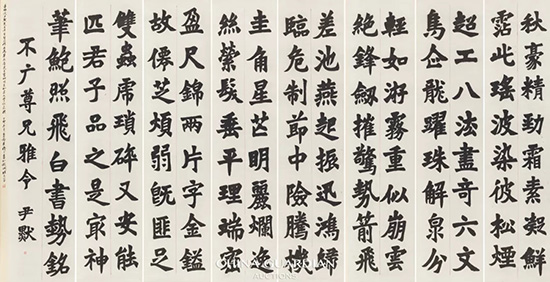 秋豪精勁霜素凝鮮
霑此瑤波染彼松煙
超工八法盡奇六文
鳥企龍躍珠解泉分
輕如游霧重似崩雲
絕鋒劍摧驚勢箭飛
差池燕起振迅鴻歸
臨危制節中險騰機
圭角星芒明麗爛逸
絲縈髮垂平理瑞密
盈尺錦兩片字金鎰
故僊芝煩弱既匪足
雙蟲虎瑣碎又安能
匹君子品之是冣神
筆鮑照飛白書勢銘
不广尊兄雅令 尹默
CHINA GUARDIAN
AUCTIONS